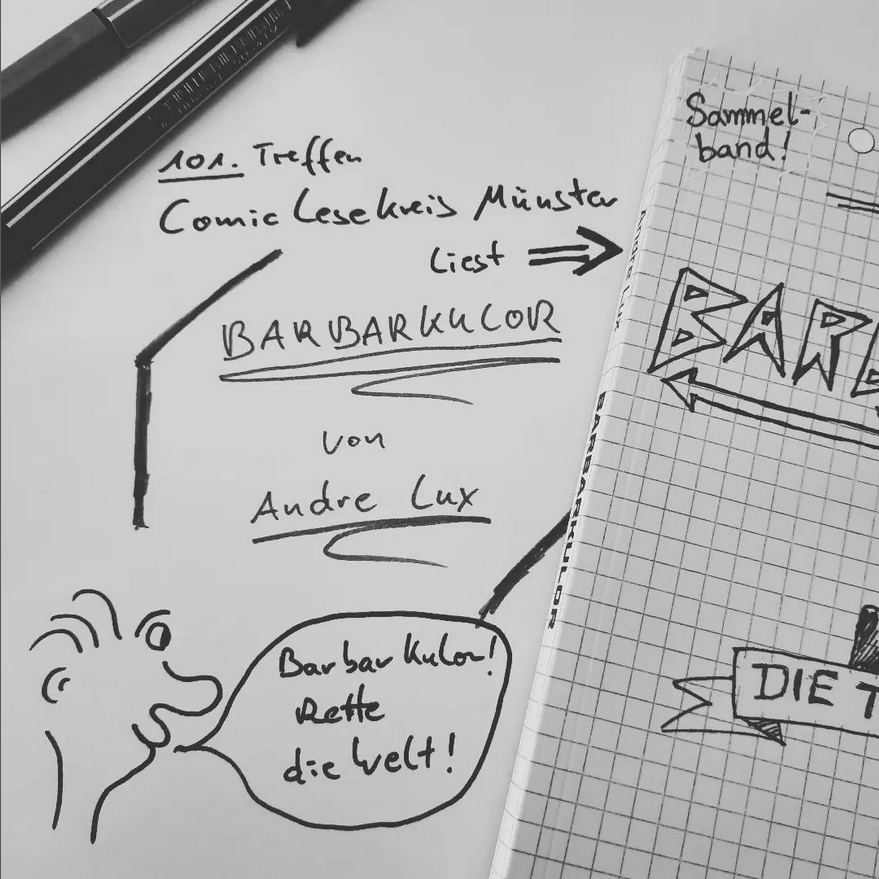 101. Treffen
Comic Lesekreis Münster
liest ⇒
BARBARKULOR
von
Andre Lux
Barbar Kulor!
Rette
die Welt!
Sammel-
band!
BARB
DIE T
BARBARKULOR